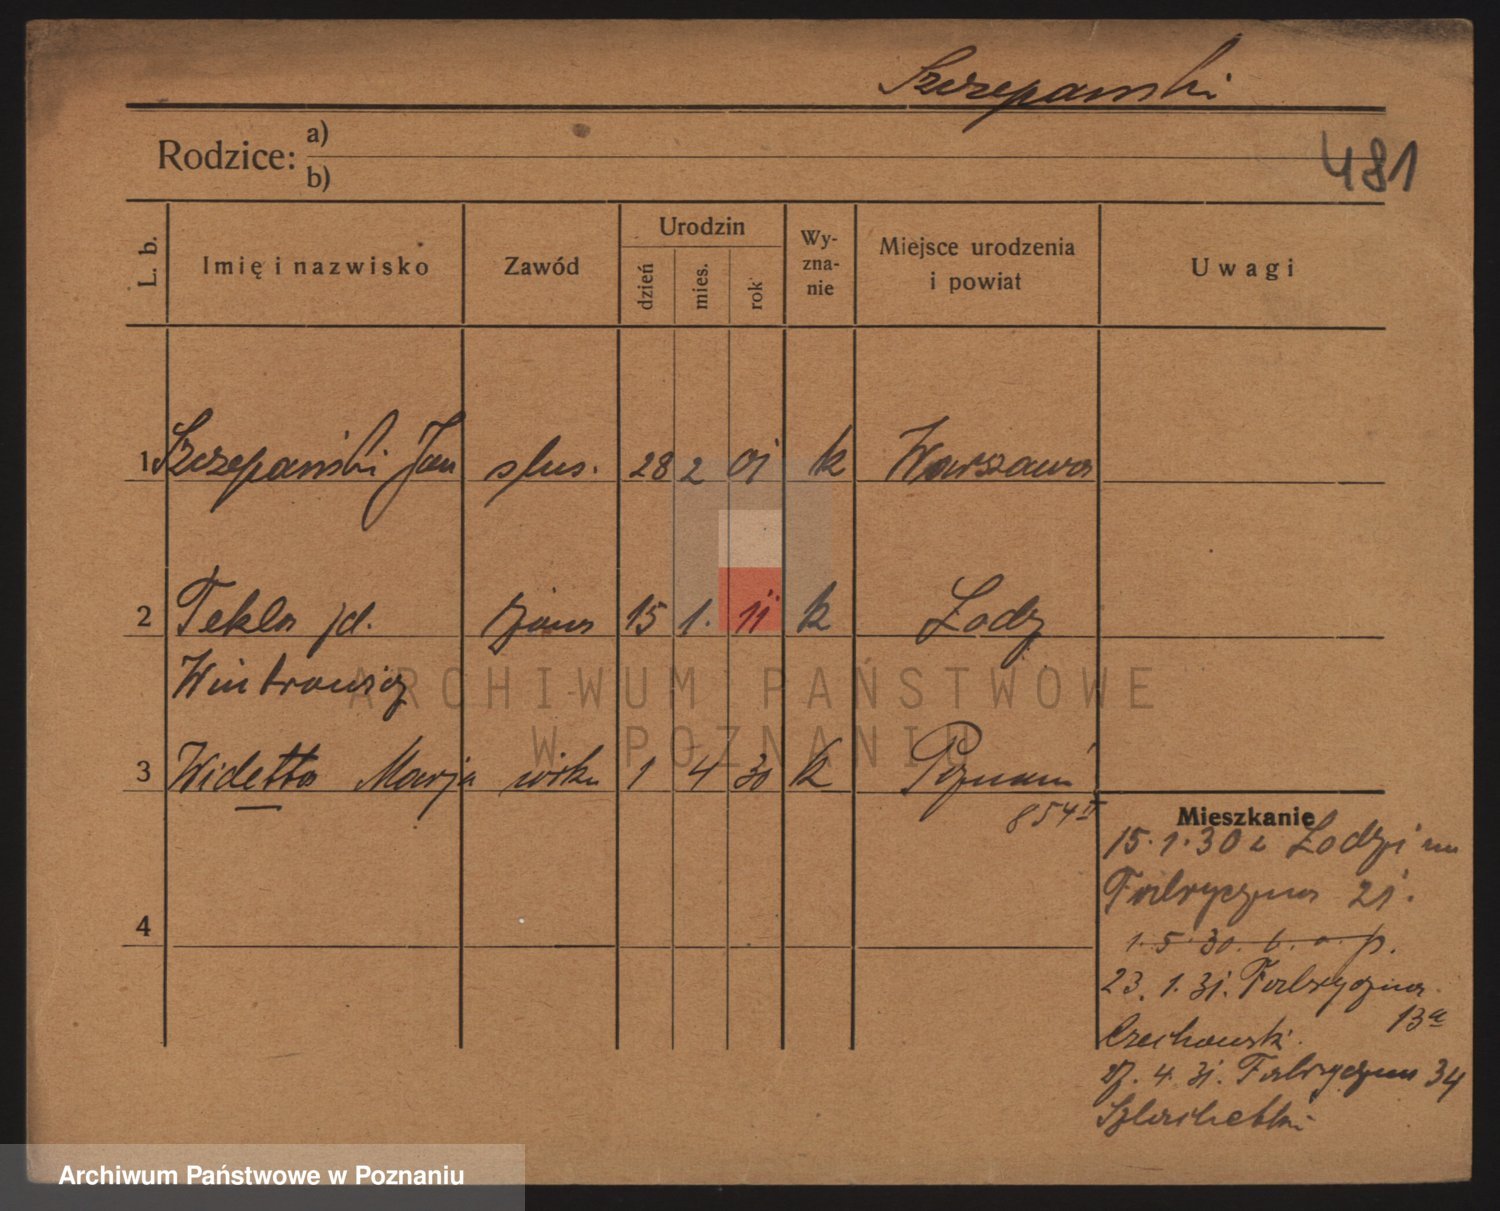 Szczepański
Rodzice: a)
b)
481
L. b. Imię i nazwisko Zawód Urodzin dzień mies. rok Wy-zna-nie Miejsce urodzenia i powiat Uwagi
1 Szczepański Jan ślus. 28 2 01 k Warszawa
2 Tekla żona 15 1. 11 k Łodz
Wintrowicz
3 Widetta Marja córka 1 4 30 k Poznań
854 II
Mieszkanie
15.1.30 z Łodzi
Fabryczna 21.
1.5.30. b. a. p.
23.1.31. Fabryczna
13a
Czechowski.
27.4.31. Fabryczna 34
4
ARCHIWUM PAŃSTWOWE
W POZNANIU
Archiwum Państwowe w Poznaniu